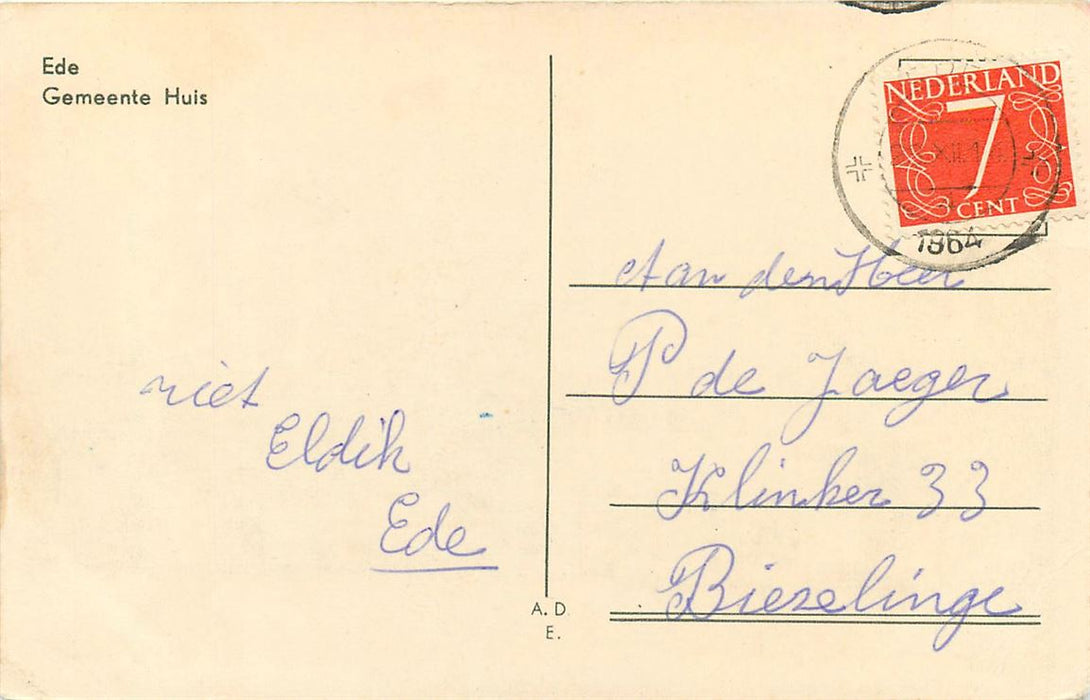 Ede
Gemeente Huis
NEDERLAND
7
CENT
1964
Aan den Heer
P de Jaeger
Klinker 33
Biezelinge
niet
Eldik
Ede
A. D.
E.